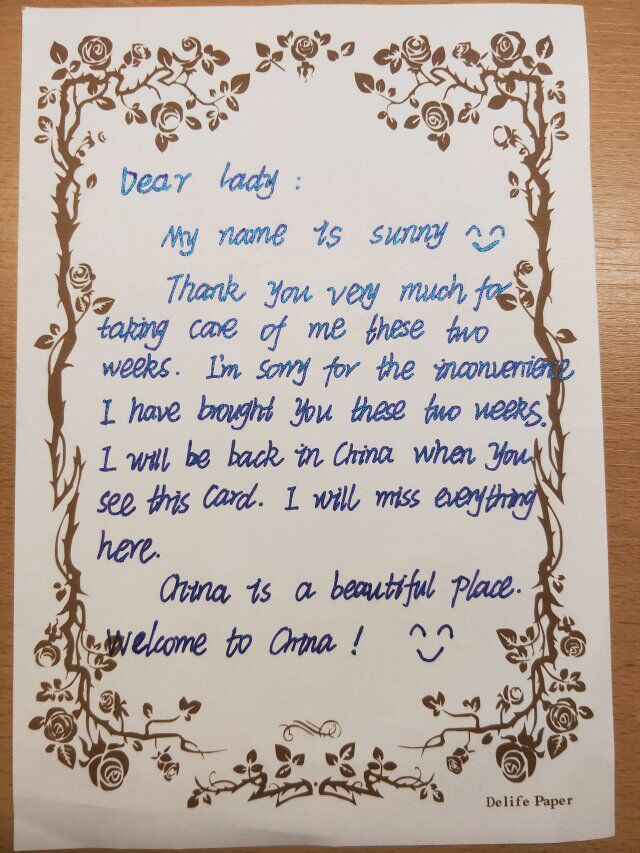 Dear lady :
My name is sunny ^‿^
Thank you very much for
taking care of me these two
weeks. I'm sorry for the inconvenience
I have brought you these two weeks.
I will be back in China when you
see this card. I will miss everything
here.
China is a beautiful place.
Welcome to China ! ^‿^
Delife Paper